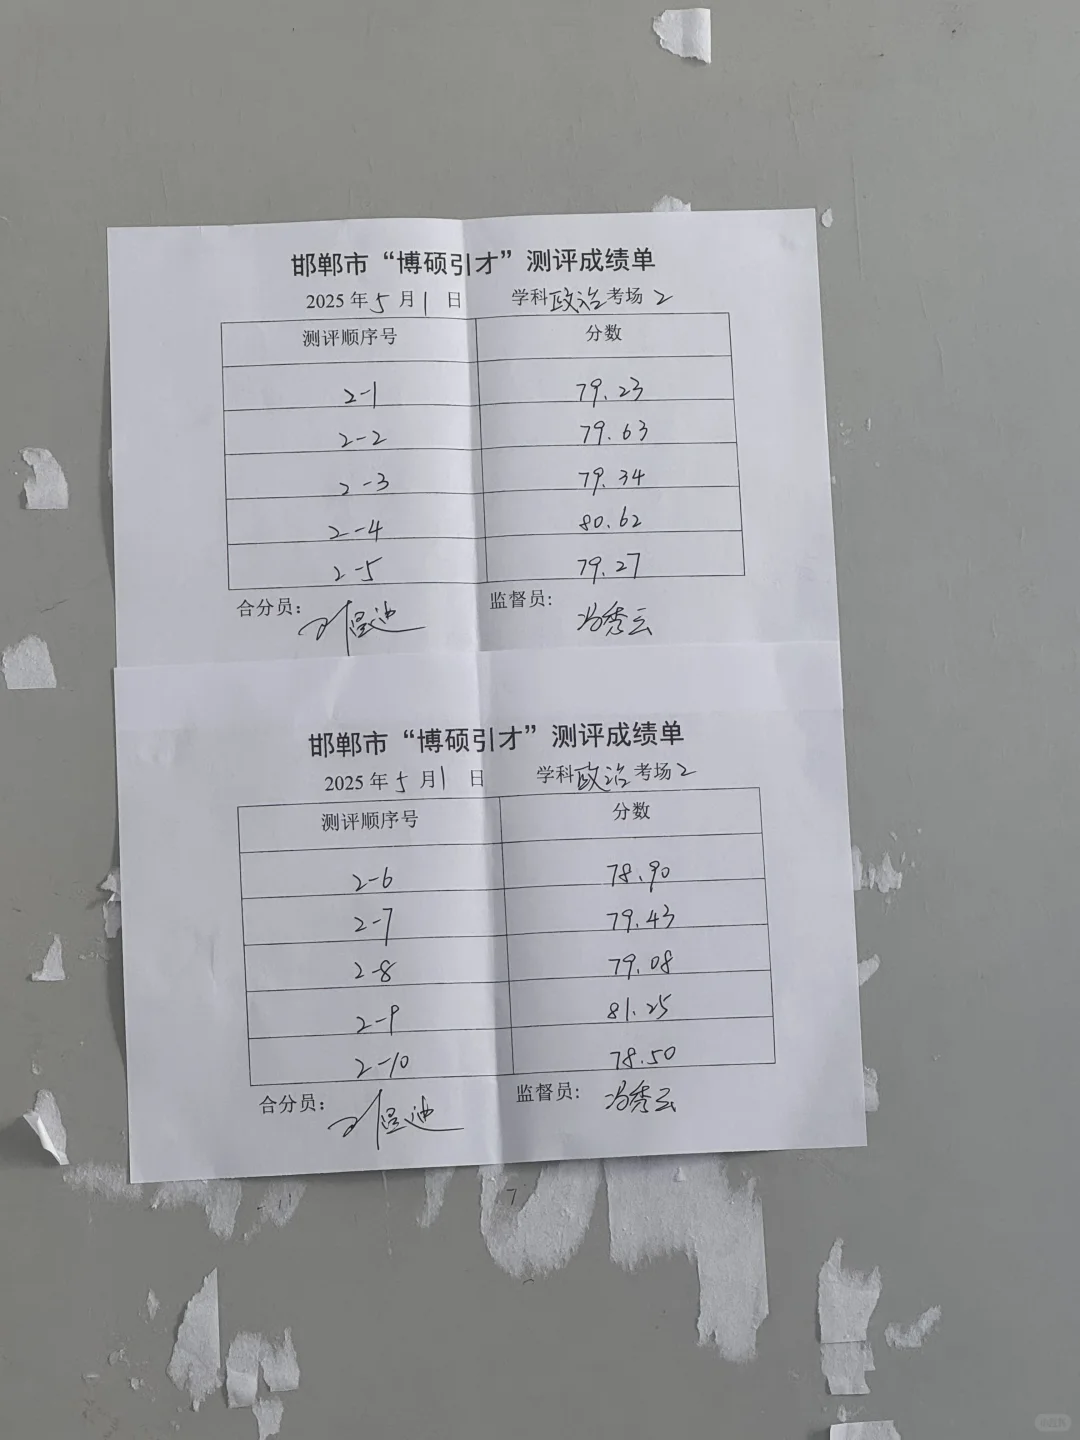 邯郸市“博硕引才”测评成绩单
2025年5月1日 学科政治考场2
测评顺序号 分数
2-1 79.23
2-2 79.63
2-3 79.34
2-4 80.62
2-5 79.27
合分员： 监督员：冯秀云
邯郸市“博硕引才”测评成绩单
2025年5月1日 学科政治考场2
测评顺序号 分数
2-6 78.90
2-7 79.43
2-8 79.08
2-9 81.25
2-10 78.50
合分员： 监督员：冯秀云